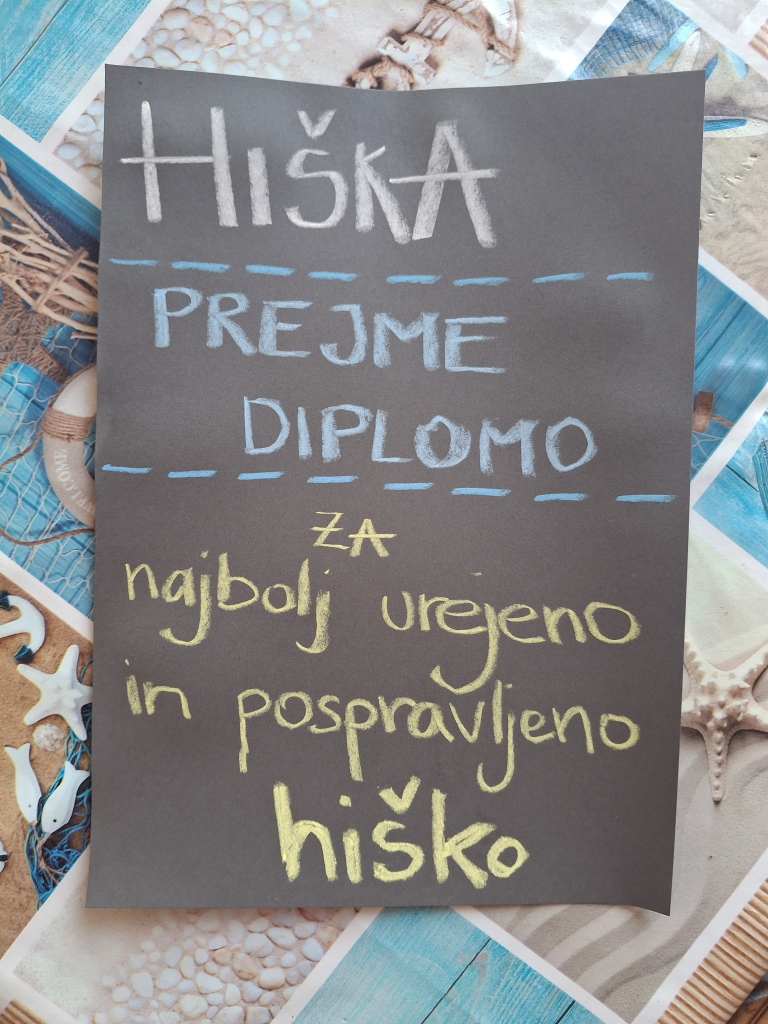 HIŠKA
PREJME
DIPLOMO
ZA
najbolj urejeno
in pospravljeno
hiško